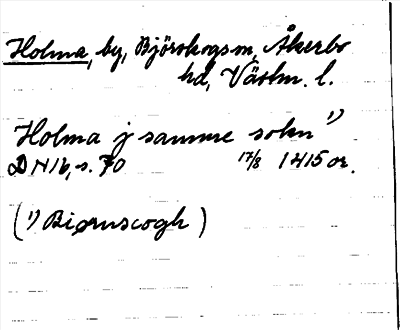 Holma, by, Björskogs sn, Åkerbo
hd, Västm. l.
Holma j samme sokn ¹)
DN 16, s. 70 17/8 1415 or.
(¹) Biørnscogh)